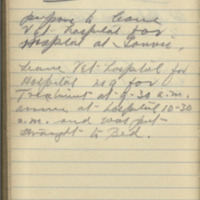 prepare to leave
Vet. hospital for
Hospital at
Leave Vet. hospital for
Hospital
Treatment at 9-30 a.m.
arrive at hospital 10-30
a.m. and was put
straight to Bed.